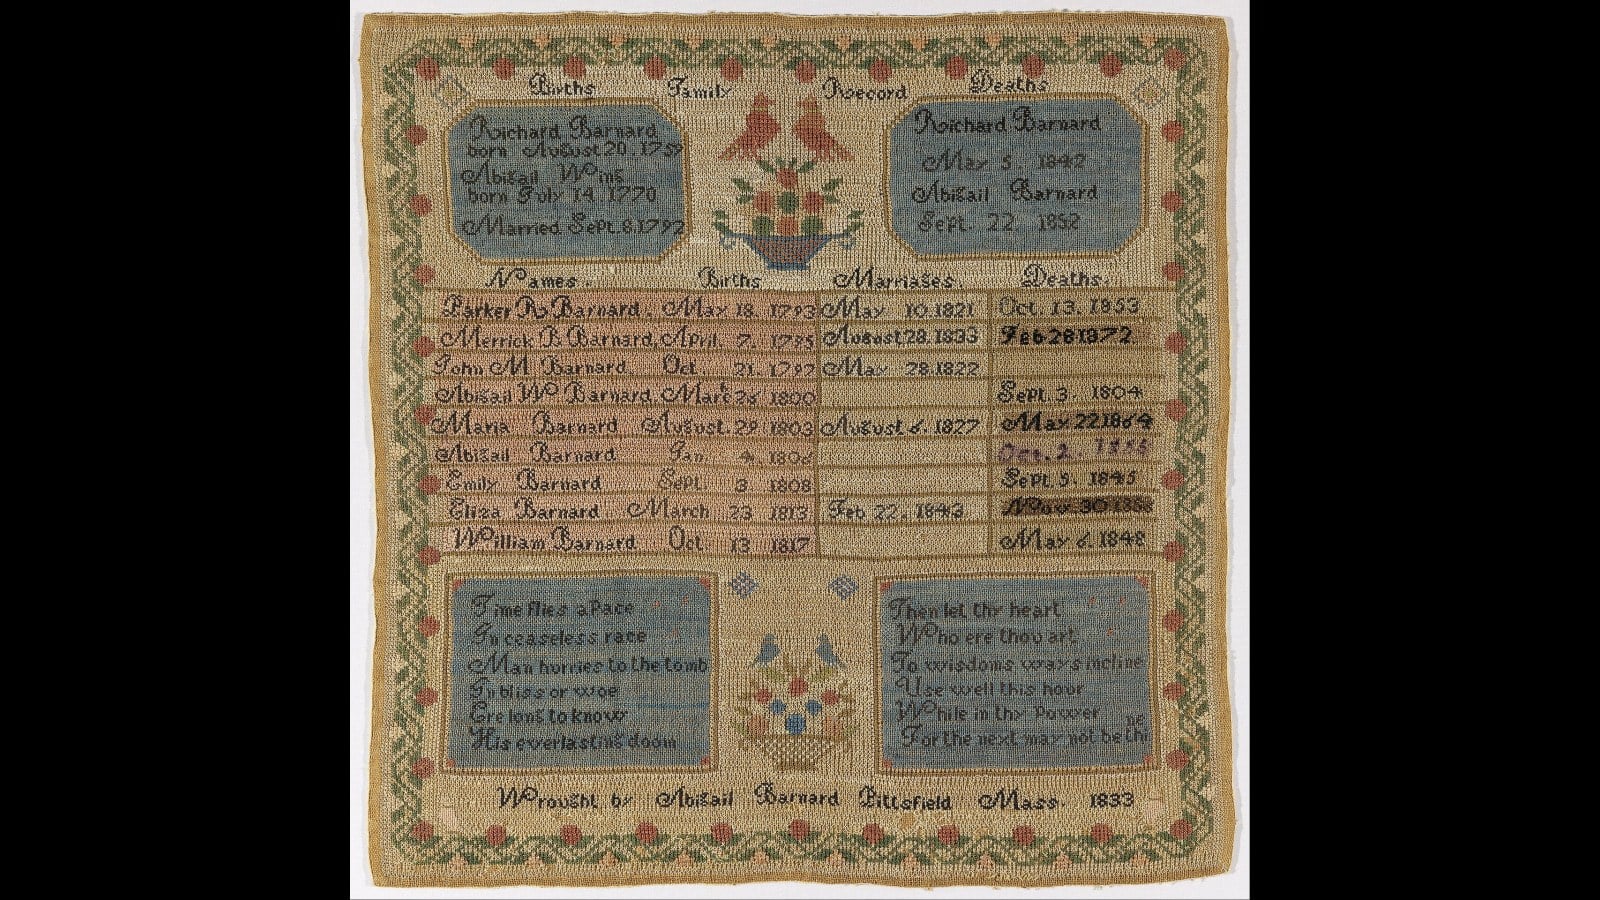 Births Family Record Deaths
Richard Barnard
born August 20. 1759
Abigail Wing
born July 14 1770
Married Sept. 8. 1792
Richard Barnard
May 5. 1842
Abigail Barnard
Sept. 22 1852
Names. Births Marriages. Deaths.
Parker R Barnard. May 18. 1793 May 10. 1821 Oct. 13. 1853
Merrick B Barnard, April. 7. 1795 August 28. 1833 Feb 28 1872
John M Barnard. Oct. 21. 1797 May 28. 1822
Abigail W Barnard, 26 1800 Sept. 3. 1804
Maria Barnard August. 29. 1803 August. 6. 1827 May 22 1864
Abigail Barnard Jan. 4. 1806 Oct. 2.
Emily Barnard Sept. 3 1808 Sept. 5. 1845
Eliza Barnard. March 23 1813 Feb 22. 1843 30
William Barnard Oct 13 1817 May 6. 1848
Time flies apace
In ceaseless race
Man hurries to the tomb
In bliss or woe
Ere long to know
His everlasting doom
Then let thy heart
Who ere thou art
To wisdoms ways incline
Use well this hour
While in thy power
For the next may not be thi
ne
Wrought by Abigail Barnard Pittsfield Mass. 1833